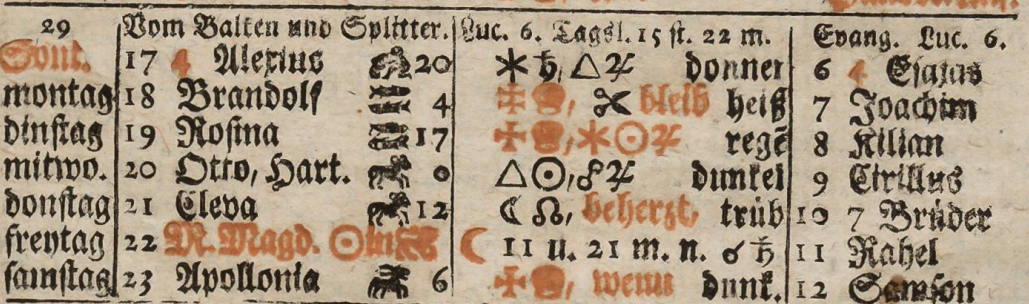 29 Vom Balken und Splitter. Luc. 6. Tagsl. 15 st. 22 m. Evang. Luc. 6.
Sont. 17 4 Alexius 20 ⚹♄, △♃ donner 6 4 Esajas
montag 18 Brandolf ♓ 4 bleib heiß 7 Joachim
dinstag 19 Rosina 17 ⚹☉♃ regē 8 Kilian
mitwo. 20 Otto, Hart. 0 △☉, ☍♃ dunkel 9 Cirillus
donstag 21 Eleva 12 ☾☊, beherzt, trüb 10 7 Brüder
freytag 22 M. Magd. ☉in ☾ 11 u. 21 m. n. ☌♄ 11 Rahel
samstag 23 Apollonia 6 wenn dunk. 12 Samson